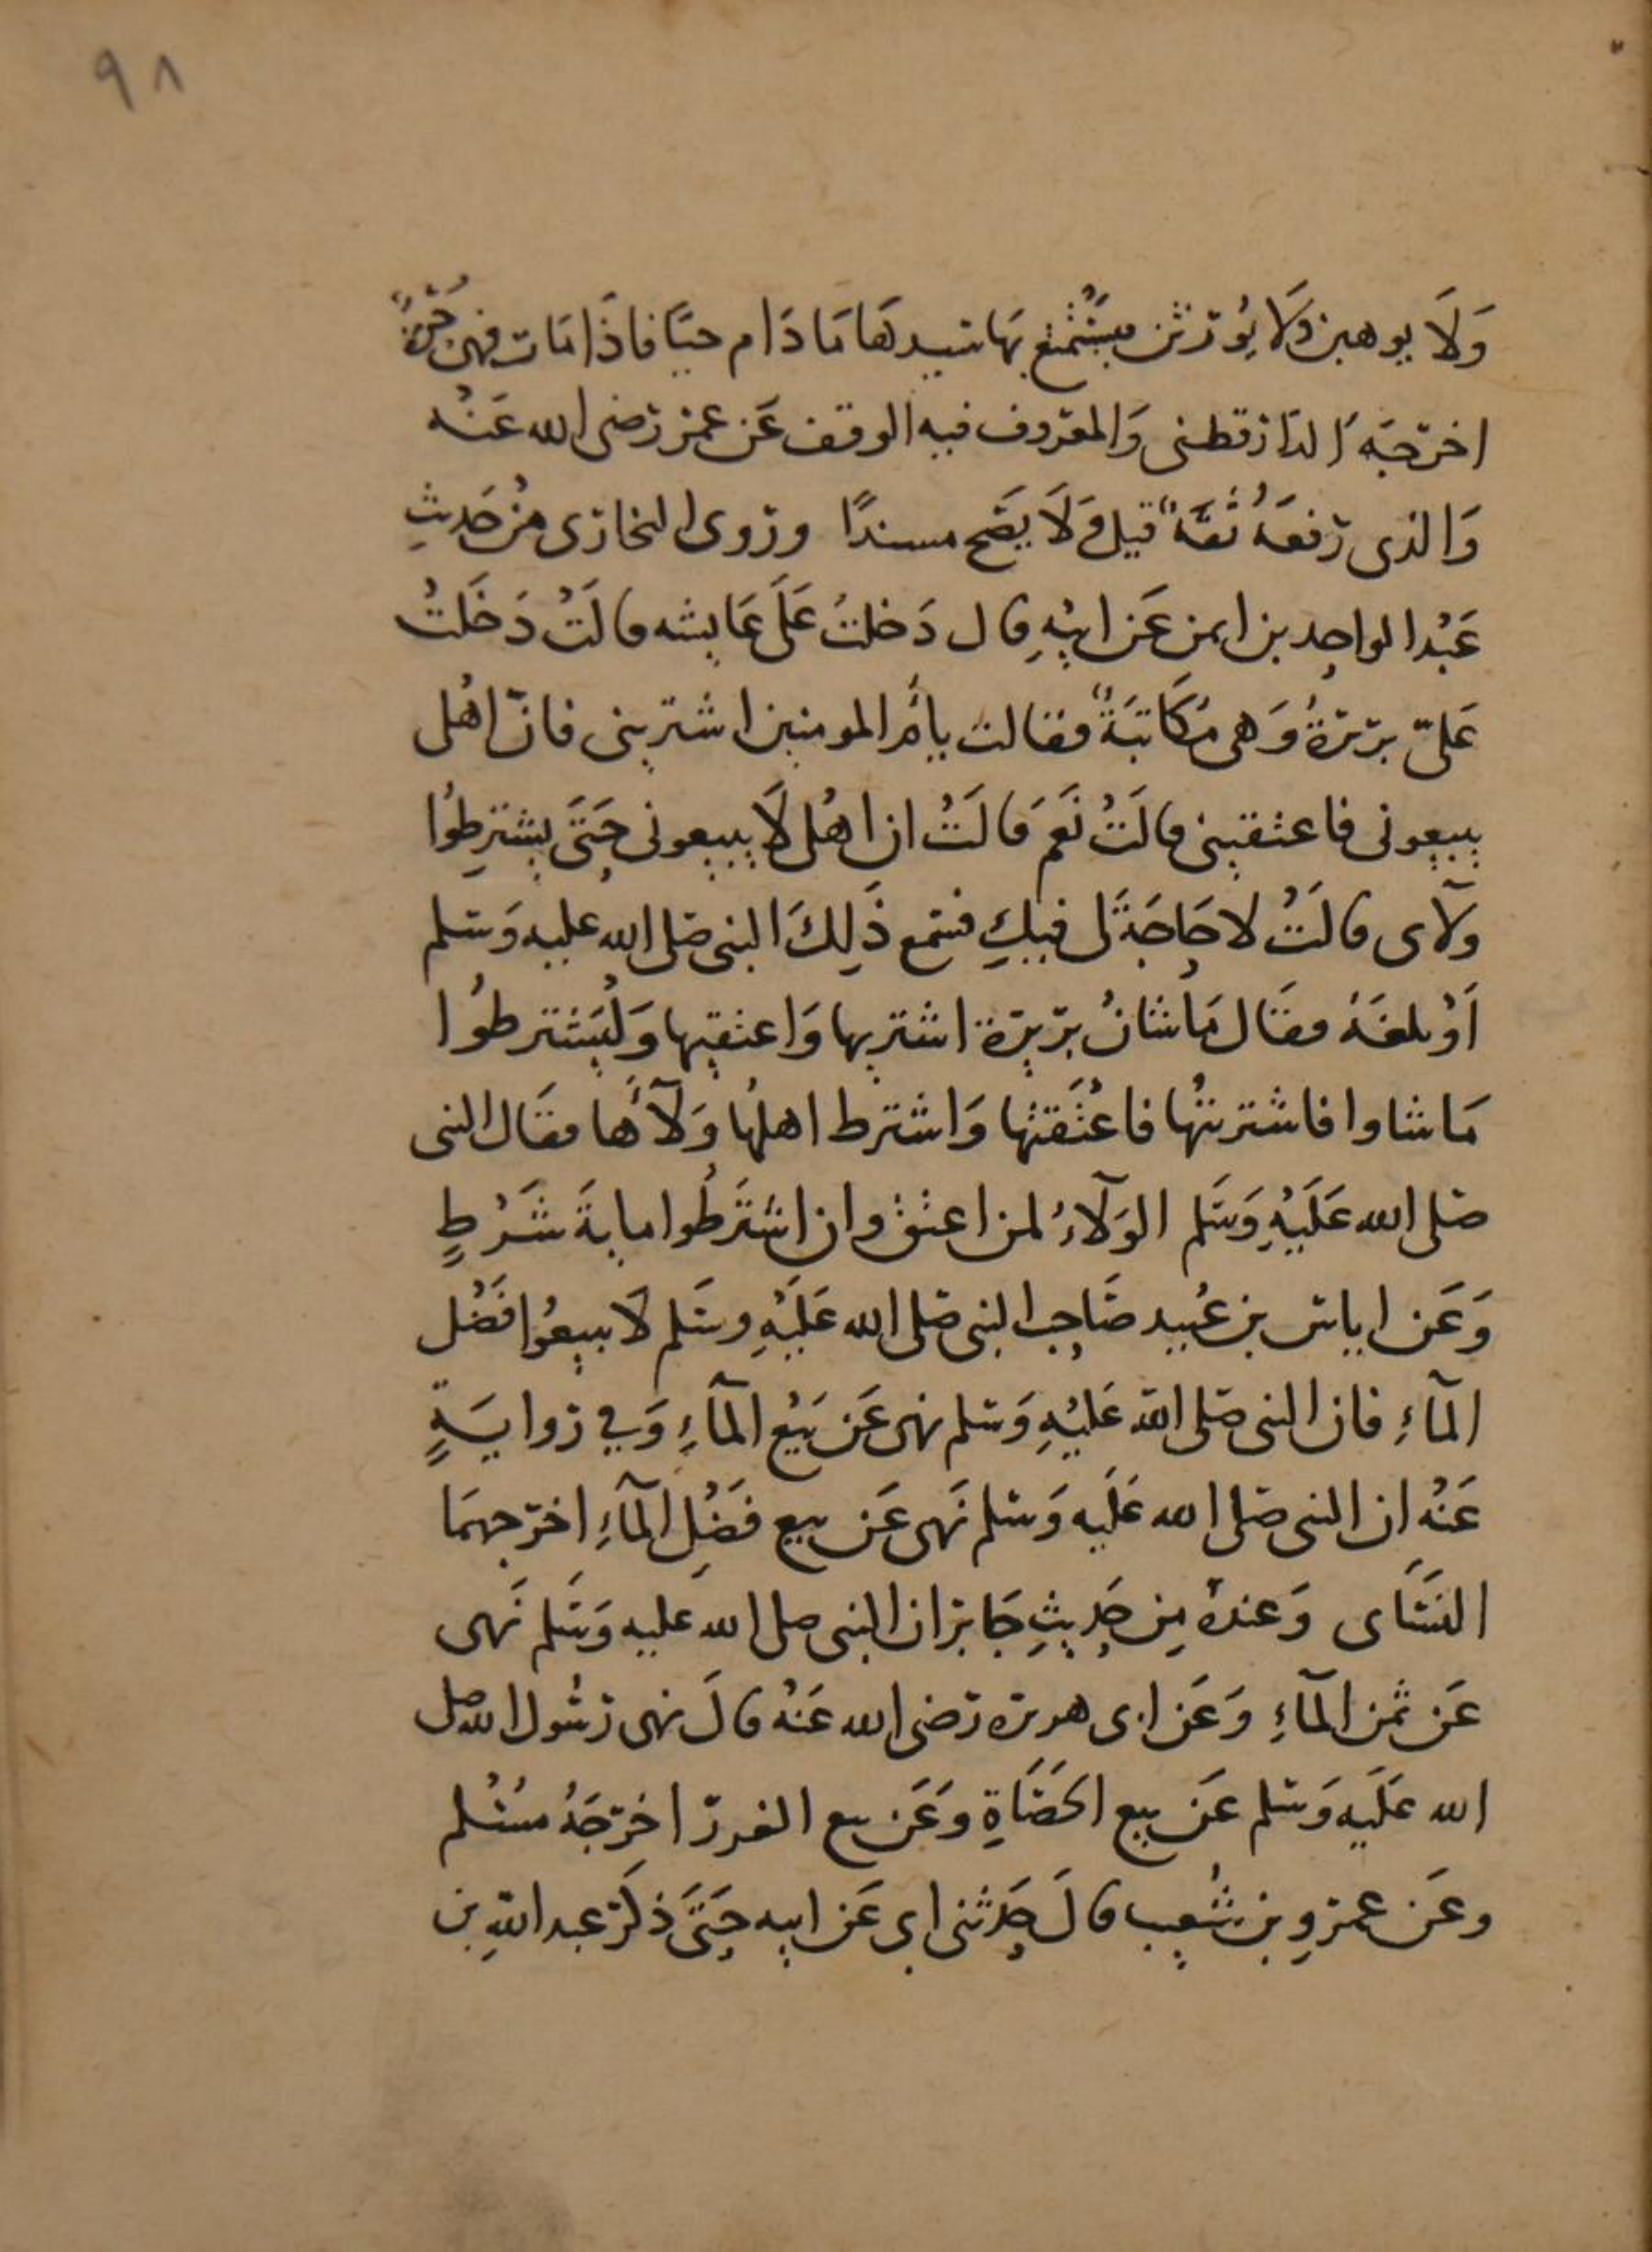 ٩٨
وَلَا يوهبن وَلَا يُورثن يَسْتَمْتِع بهَا سَيدهَا مَا دَام حيَّا فاذَا مَات فهى حُرّةٌ
اخرّجَه الدَارقطنى وَالمعروف فيه الوقف عَن عمَر رَضى الله عَنْه
وَالذى رَفعَهُ ثقَةٌ قيل وَلَا يصَح مسندًا وروى البخارى من حَديثِ
عَبْد الواحِد بن ايمن عَن ابيْهِ قال دَخلتُ عَلَى عَايشه قالَتْ دَخَلتْ
عَلىّ برَيرَةُ وَهى مَكَاتبَةٌ فقالت يا أم المومنين اشتريني فانّ اهْلى
يبيعونى فاعتقيني قالَتْ نَعَم قالَتْ ان اهْلى لَا يبيعونى حَتىَّ يشترِطوُا
ولآى قالَتْ لا حَاجَةَ لى فيكِ فسَمع ذَلِكَ النبى صَلى الله عليه وَسَلم
اَوْ بلغَهُ فقَال مَا شانُ برَيرَة اشتريها وَاعتقيها وَلْيَشترطوُا
مَا شاوا فاشتريتُها فاعْتَقتها وَاشترط اهلهُا وَلآءَها فقَال النبى
صَلى الله عَلَيْهِ وَسَلم الوَلآءُ لمن اعتق وان اشتَرطُوا ماية شَرْطٍ
وَعَن اياس بن عُبيد صَاحِب النبى صَلى الله عَلَيْهِ وسَلم لَا تبيعُوا فَضْل
المآءِ فان النبى صَلى الله عَليْهِ وَسَلم نهى عَن بَيْع المآءِ وَفي روايَةٍ
عَنْه ان النبى صَلى الله عَلَيه وَسَلم نَهى عَن بيع فَضْلِ المآءِ اخرَجهمَا
النسَاى وَعندهُ مِن حَديثِ جَابر ان النبى صلى الله عليه وَسَلم نَهى
عَن ثمن المآءِ وَعَن ابى هريره رَضى الله عَنْهُ قالَ نهى رسُول الله صلى
الله عَلَيه وَسَلم عَن بيع الحَصَاةِ وَعَن بيع الغرر اخرَجَهُ مسْلم
وعَن عمروِ بن شُعيب قالَ حَدثنى ابى عَن ابيه حَتَّى ذكرَ عبد اللهِ بن